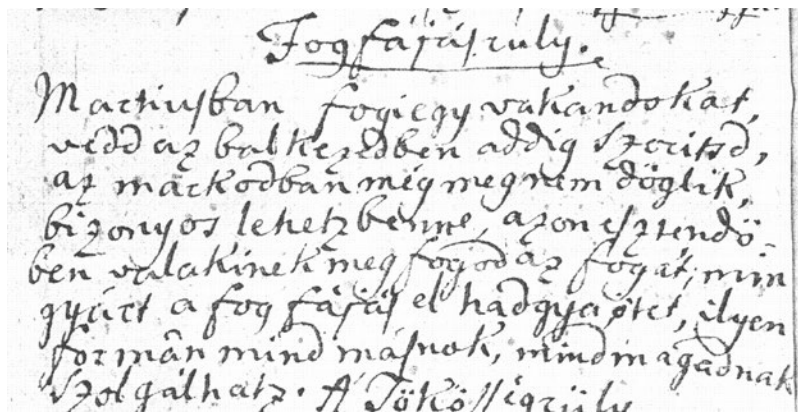 Fogfájásruly.
Martiusban fogi egy vakandokat,
vedd az balkezedben addig szoritsd,
az markodban mig meg nem döglik,
bizonyos lehetz benne, azon esztendö-
ben valakinek meg fogod az fogát, min
gyárt a fog fájás el hadgya ötet, illyen
formán mind másnok, mind magadnak
szolgálhatz. A Tökösségrüly